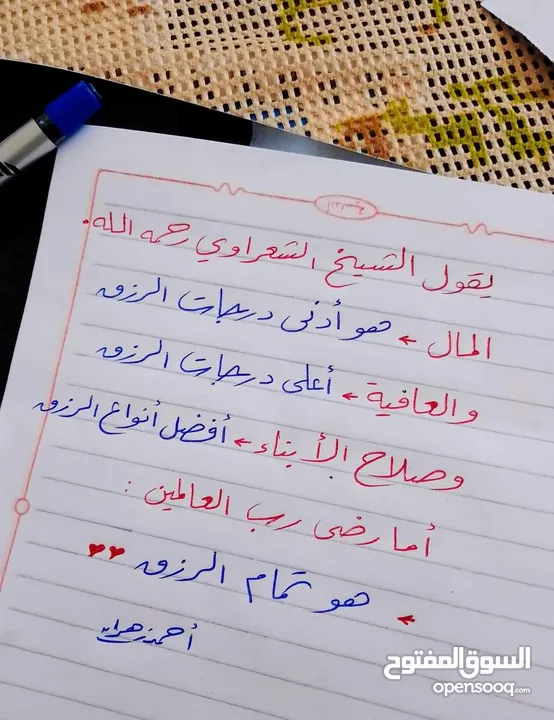 يقول الشيخ الشعراوي رحمه الله.
المال ← هو أدنى درجات الرزق
والعافية ← أعلى درجات الرزق
وصلاح الأبناء ← أفضل أنواع الرزق
أما رضى رب العالمين :
← هو تمام الرزق ♥♥
أحمد زهران
السوق المفتوح
opensooq.com